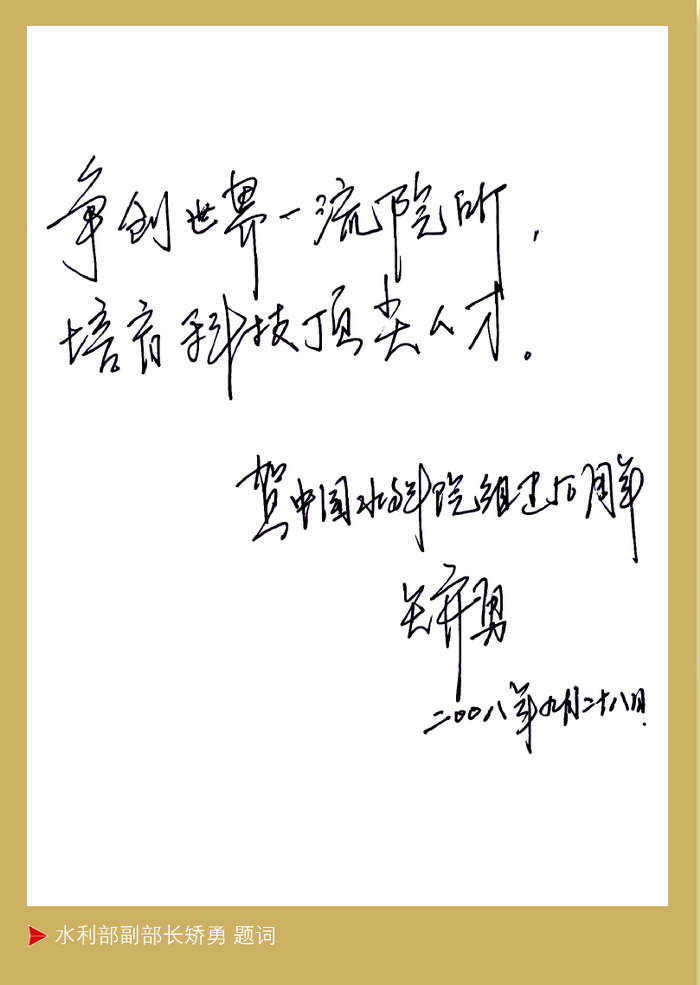 争创世界一流院所，
培育科技顶尖人才。
贺中国水科院组建50周年
矫勇
二〇〇八年九月二十八日.
水利部副部长矫勇 题词